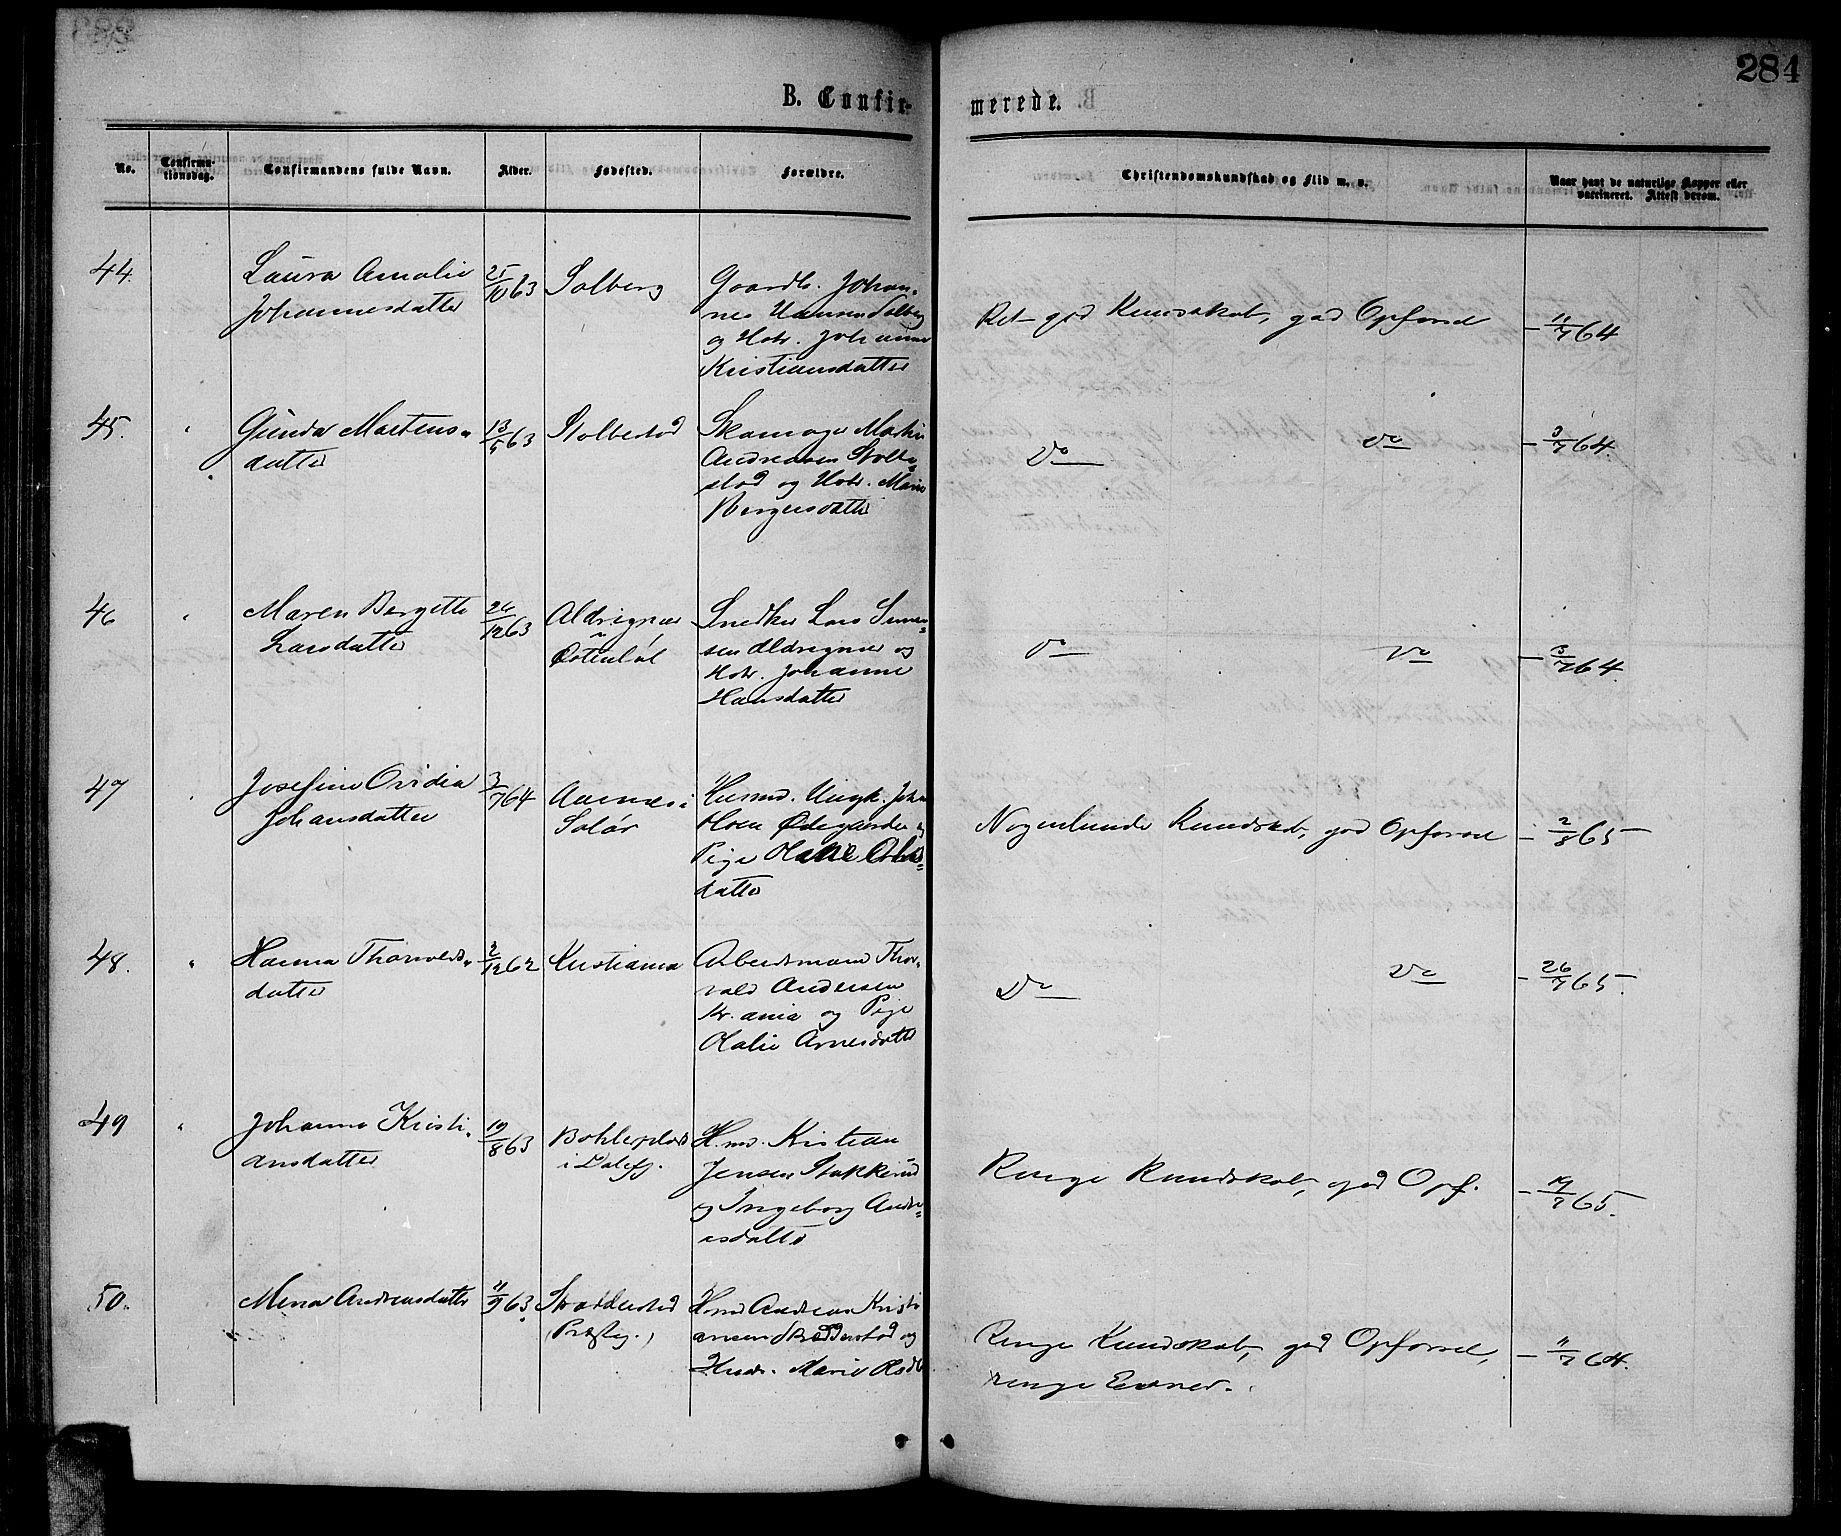 284
B. Confir-
merede.
No.
Confirma-
tionsdag.
Confirmandens fulde Navn.
Alder.
Fødested.
Forældre.
Christendomskundskab og Flid m. v.
Naar havt de naturlige Kopper eller
vaccineret. Attest derom.
44.
Laura Amalie
Johannesdatter
25/10 63
Solberg
Gaardb. Johan-
nes Hansen Solberg
og Hstr. Johanne
Kristiansdatter
Ret god Kundskab, god Opførsel
- 11/7 64
45.
Gunda Martens-
datter
13/5 63
Stolbestad
Martin
Andreasen Stolbe-
stad og Hstr. Marie
Bergersdatter
Do Do
- 3/7 64.
46
Maren Bergette
Larsdatter
26/12 63
Aldrignær
Snedker Lars Simen-
sen Aldrignær og
Hstr. Johanne
Hansdatter
Do Do
- 3/7 64.
47
Josefine Ovidia
Johansdatter
3/7 64
Aasnes i
Solør
Husmd. Ungk. Johan
Olsen Ødegaarden og
Pige
datter
Nogenlunde Kundskab, god Opførsel
- 2/8 65
48.
Hanna Thorvalds-
datter
2/12 62
Kristiania
Arbeidsmand Thor-
vald Andersen
Kr.ania og Pige
Olalie Arnesdatter
Do Do
- 26/7 65.
49
Johanne Kristi-
ansdatter
19/8 63
Bøhlerplads
i Østfj.
H.md. Kristian
Jensen Stakkerud
og Ingeborg Andre-
asdatter
Ringe Kundskab, god Opf.
- 19/7 65.
50.
Mina Andreasdatter
11/9 63
Skraddestad
(Præsteg.)
Hmd Andreas Kristi-
ansen Skraddestad og
Marie
Ringe Kundskab, god Opførsel,
ringe Evner.
- 11/7 64.